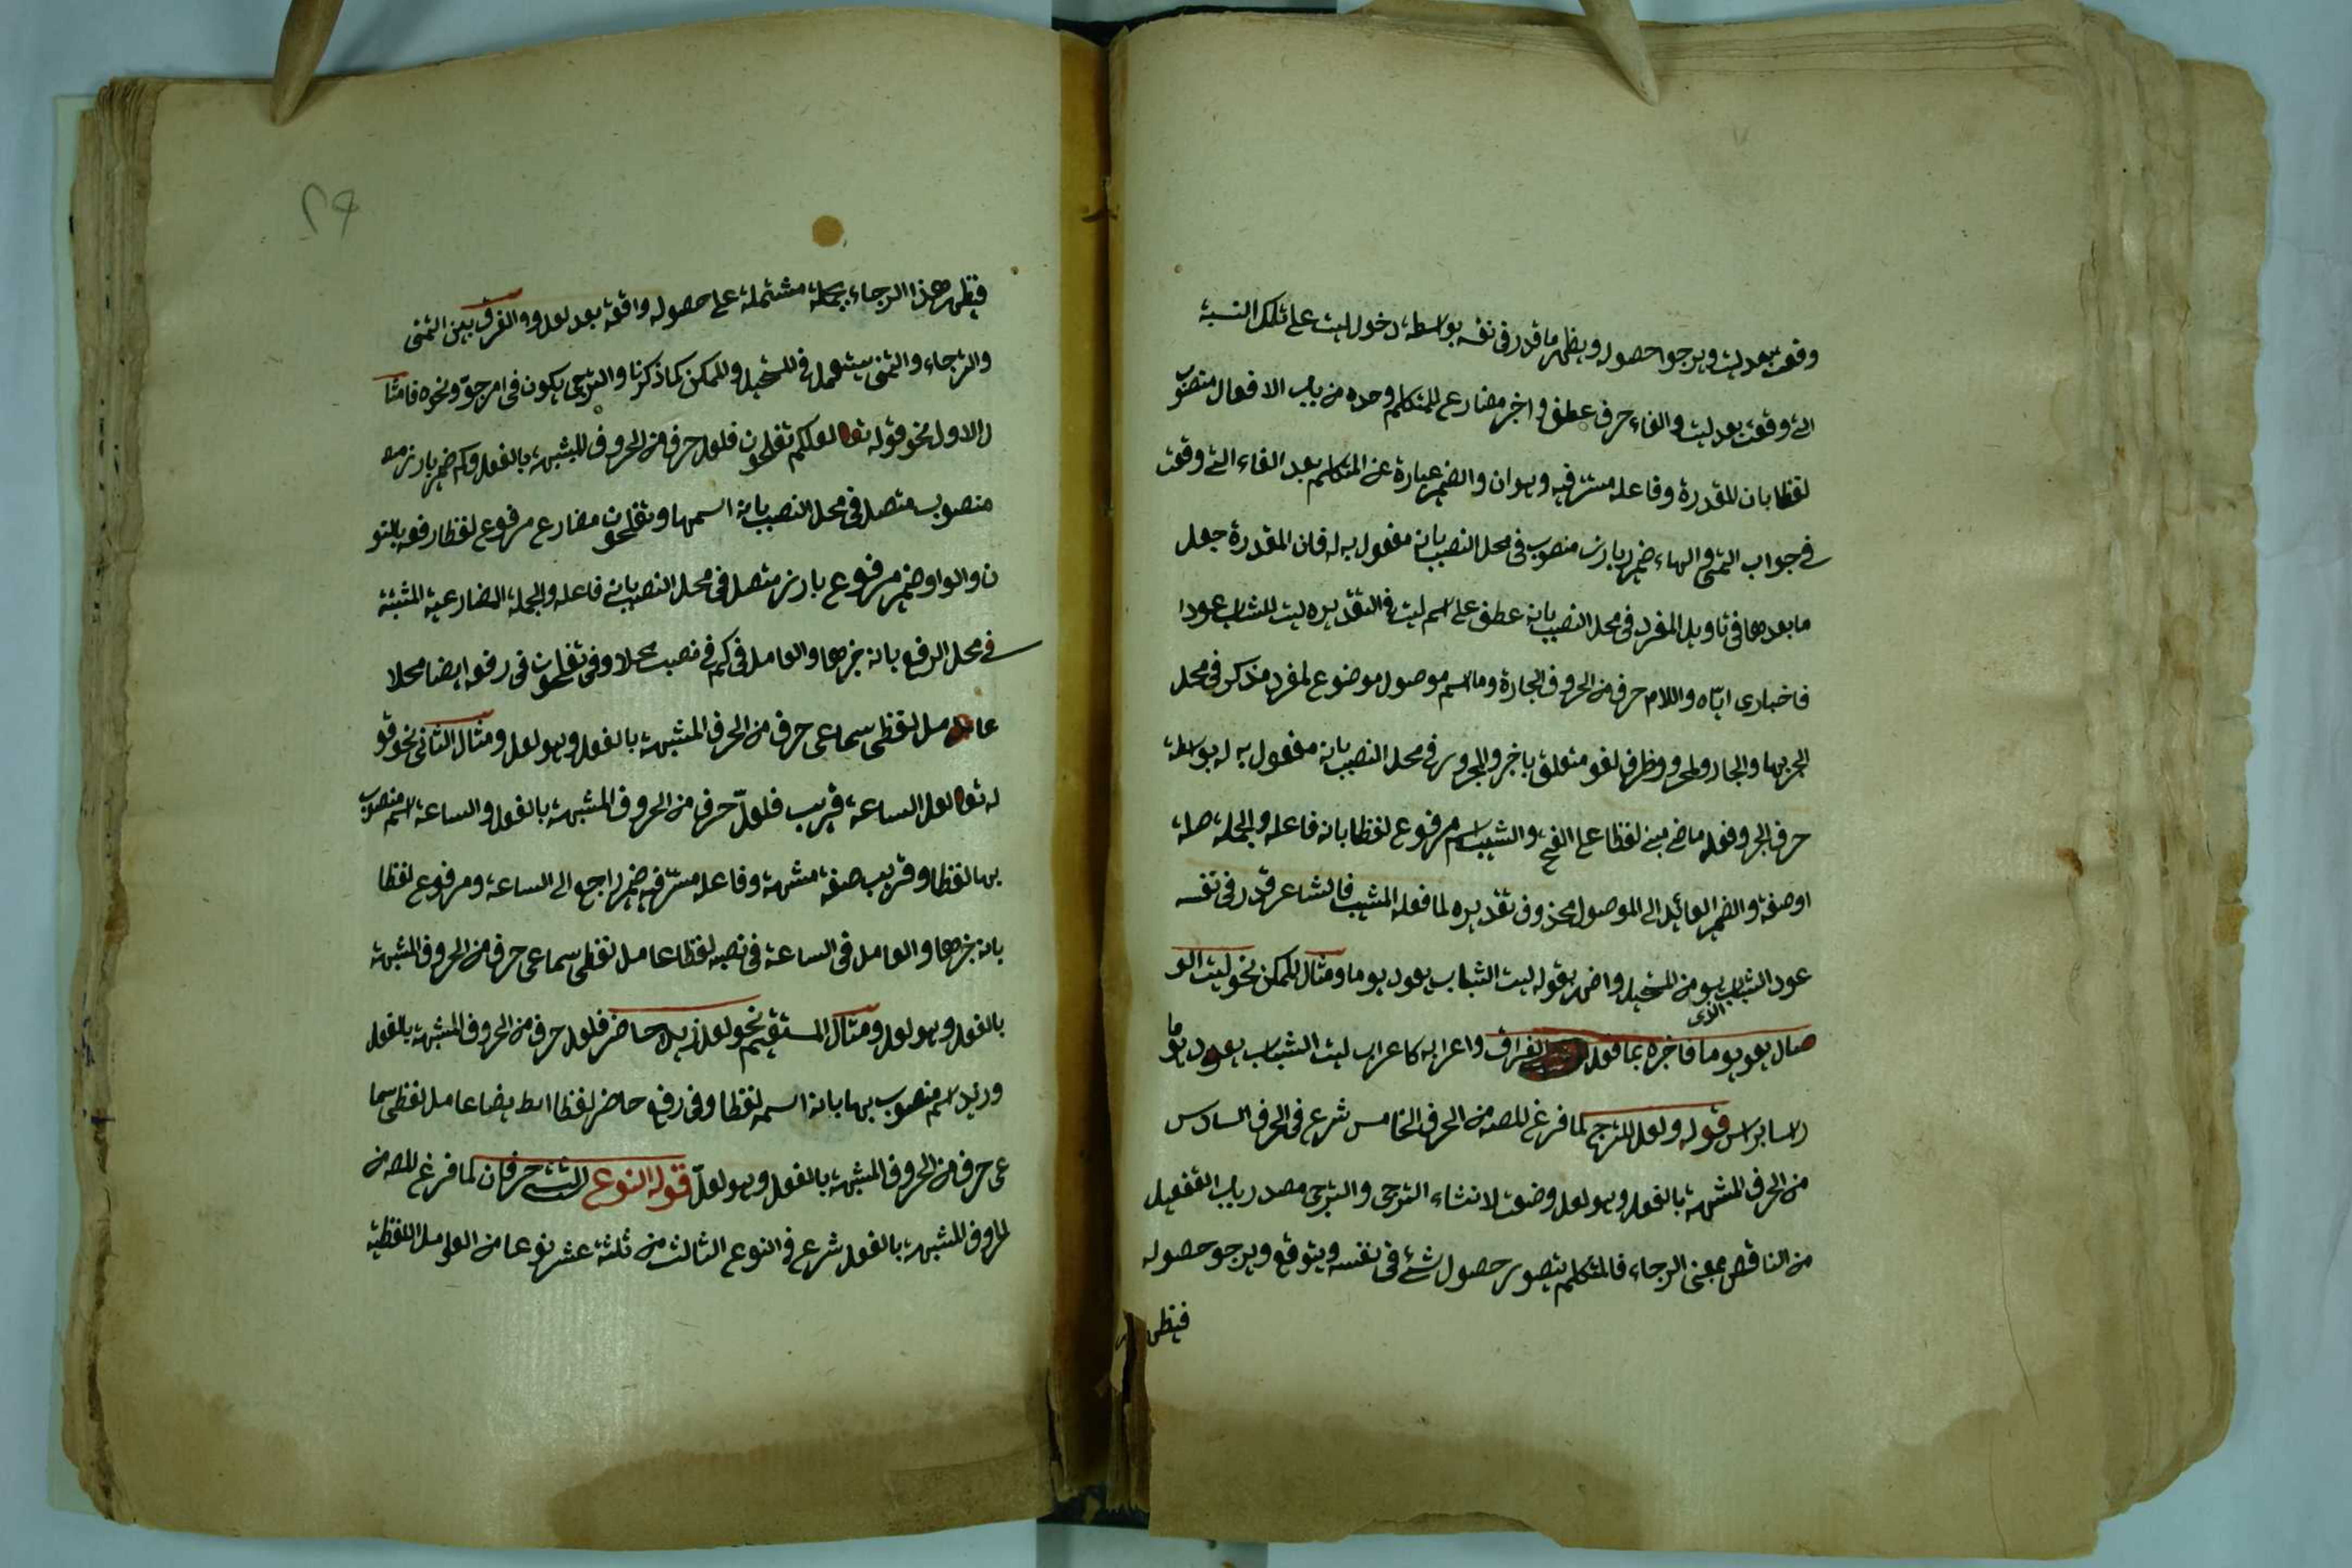 وقعت بعد ليت ويرجوا حصوله ويظهر ما قدر فى نفسه بواسطة دخول ليت على تلك النسبة
التى وقعت بعد ليت والفاء حرف عطف واخبر مضارع للمتكلم وحده من باب الافعال منصوب
لفظا بان المقدرة وفاعله مستتر فيه وهو ان والضمير عبارة عن المتكلم بعد الفاء التى وقعت
فى جواب التمنى والهاء ضمير بارز منصوب فى محل النصب بانه مفعول به له فان المقدرة جعل
ما بعدها فى تاويل المفرد فى محل النصب بانه عطف على اسم ليت فى التقديره ليت للشباب عودا
فاخبارى اياه واللام حرف من الحروف الجارة وما اسم موصول موضوع لمفرد مذكر فى محل
الجر بها والجار والمجرور ظرف لغو متعلق باخبر والمجرور فى محل النصب بانه مفعول به له بواسطة
حرف الجر وفعل ماض مبنى لفظا على الفتح والشيب اسم مرفوع لفظا بانه فاعله والجملة صلة
او صفة والضمير العائد الى الموصول محذوف تقديره لما فعله المشيب فالشاعر قدر فى نفسه
عود الشباب هو من المستحيل واضمر بقوله ليت الشباب يعود يوما ومثال الممكن نحو ليت الو
صال يعود يوما فاخبره بما فعل الذى الفراق واعرابه كاعراب ليت الشباب يعود يوما
قوله ولعل للترجى لما فرغ المصه من الحرف الخامس شرع فى الحرف السادس
من الحرف المشبهة بالفعل وهو لعل وضعت لانشاء الترجى والترجى مصدر باب التفعيل
من الناقص بمعنى الرجاء فالمتكلم يتصور حصول شئ فى نفسه ويتوقع ويرجو حصوله
فيظهر
٢٩
فيظهر هذا الرجاء بجملة مشتملة على حصوله واقعة بعد لعل والفرق بين التمنى
والترجاء والتمنى يستعمل فى المستحيل والممكن كما ذكرنا والترجى يكون فى امر مرجو ونحوه فامثا
ل الاول نحو قوله تعا لعلكم تفلحون فلعل حرف من الحروف المشبهة بالفعل وكم ضمير بارز
منصوب متصل فى محل النصب بانه اسمها وتفلحون مضارع مرفوع لفظا رفعه بالنو
ن والواو ضمير مرفوع بارز متصل فى محل النصب بانه فاعله والجملة المضارعية المثبتة
فى محل الرفع بانه خبرها والعامل فى كم فى نصبه محلا وفى تفلحون فى رفعه ايضا محلا
عامل لفظى سماعى حرف من الحرف المشبهة بالفعل وهو لعل ومثال الثانى نحو قو
له تعا لعل الساعة قريب فلعلّ حرف من الحروف المشبهة بالفعل والساعة اسم منصوب
بها لفظا وقريب صفة مشبهة وفاعله مستتر فيه ضمير راجع الى الساعة ومرفوع لفظا
بانه خبرها والعامل فى الساعة فى نصبه لفظا عامل لفظى سماعى حرف من الحروف المشبهة
بالفعل وهو لعل ومثال المستقيم نحو لعل زيدا حاضر فلعل حرف من الحروف المشبهة بالفعل
وزيد اسم منصوب بها بانه اسمه لفظا وفى رفع حاضر لفظا ايضا عامل لفظى سما
عى حرف من الحروف المشبهة بالفعل وهو لعلّ قوله النوع الثالث حرفان لما فرغ المصه من
الحروف المشبهة بالفعل شرع فى النوع الثالث من ثلثة عشر نوعا من العوامل اللفظية